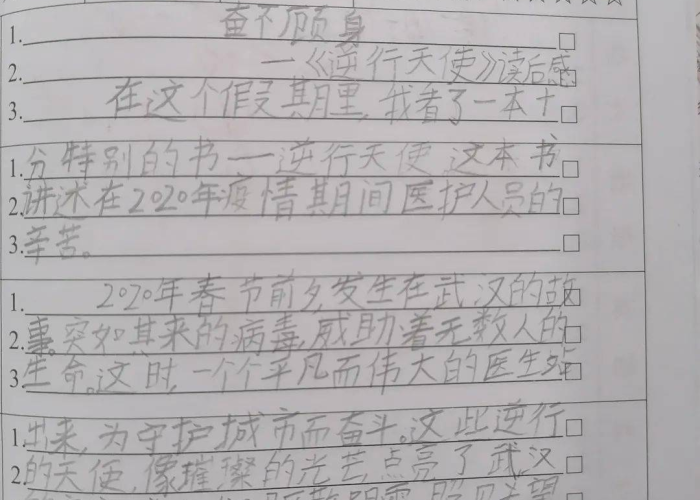 1. 奋不顾身
2. 一《逆行天使》读后感
3. 在这个假期里,我看了一本十
1. 分特别的书——逆行天使 这本书
2. 讲述在2020年疫情期间医护人员的
3. 辛苦。
1. 2020年春节前夕,发生在武汉的故
2. 事。突如其来的病毒,威助着无数人的
3. 生命。这时,一个个平凡而伟大的医生站
1. 出来,为守护城市而奋斗。这些逆行
2. 的天使,像璀璨的光芒,点亮了武汉